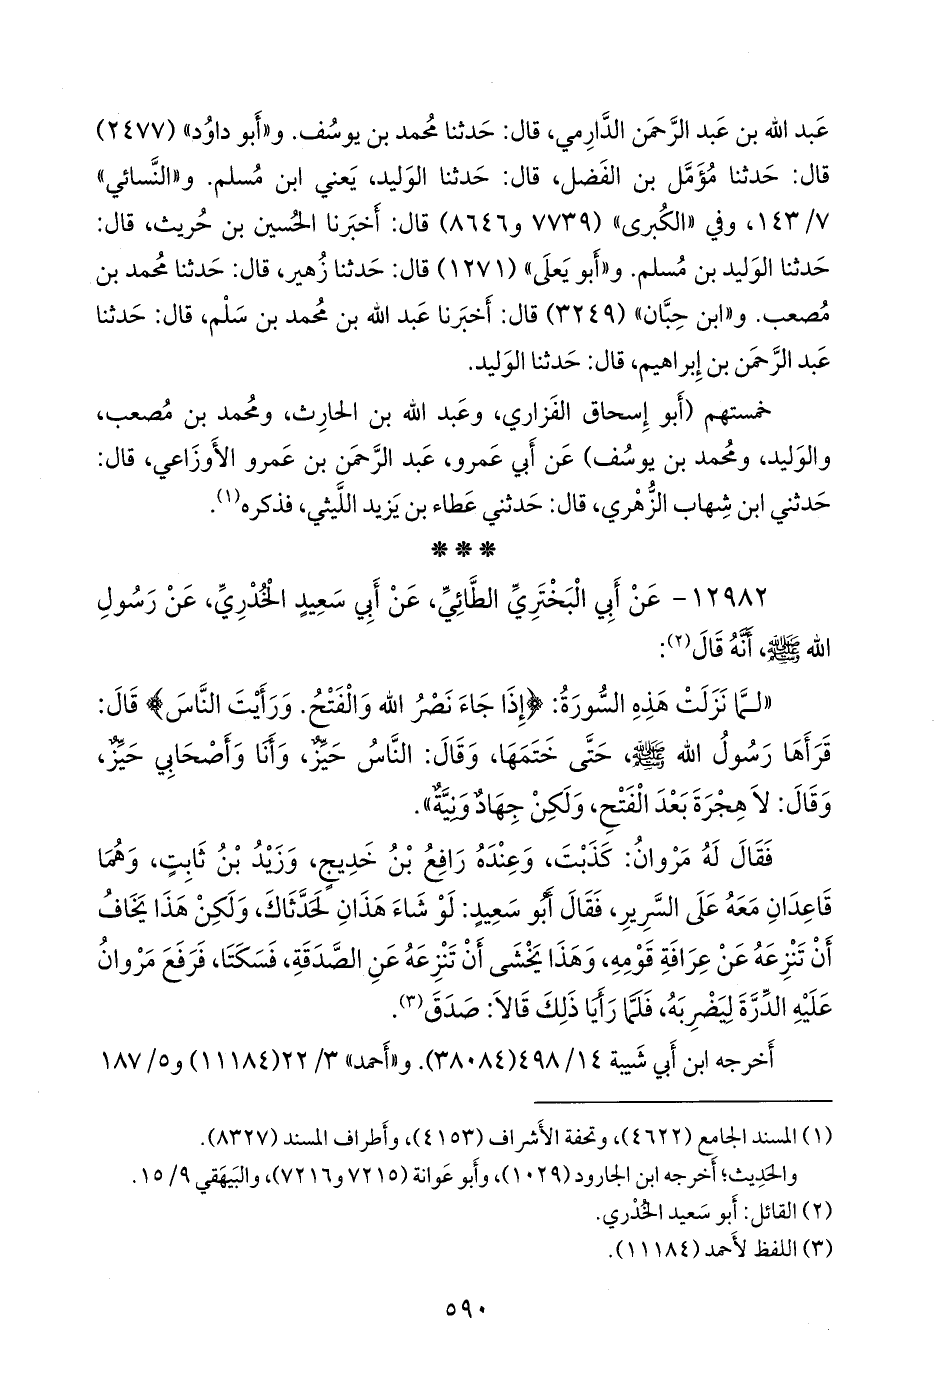 عَبد الله بن عَبد الرَّحمَن الدَّارِمي، قال: حَدثنا مُحمد بن يوسُف. و«أَبو داوُد» (٢٤٧٧)
قال: حَدثنا مُؤَمَّل بن الفَضل، قال: حَدثنا الوَليد، يَعني ابن مُسلم. و«النَّسائي»
٧/ ١٤٣، وفي «الكُبرى» (٧٧٣٩ و٨٦٤٦) قال: أَخبَرنا الحُسين بن حُريث، قال:
حَدثنا الوَليد بن مُسلم. و«أَبو يَعلَى» (١٢٧١) قال: حَدثنا زُهير، قال: حَدثنا محمد بن
مُصعب. و«ابن حِبَّان» (٣٢٤٩) قال: أَخبَرنا عَبد الله بن مُحمد بن سَلْم، قال: حَدثنا
عَبد الرَّحمَن بن إِبراهيم، قال: حَدثنا الوَليد.
خمستهم (أَبو إِسحاق الفَزاري، وعَبد الله بن الحارِث، ومُحمد بن مُصعب،
والوَليد، ومُحمد بن يوسُف) عَن أَبي عَمرو، عَبد الرَّحمَن بن عَمرو الأَوزَاعي، قال:
حَدثني ابن شِهاب الزُّهْري، قال: حَدثني عَطاء بن يَزيد اللَّيثي، فذكره(١).
* * *
١٢٩٨٢- عَنْ أَبِي الْبَخْتَرِيِّ الطَّائِيِّ، عَنْ أَبِي سَعِيدٍ الْخُدْرِيِّ، عَنْ رَسُولِ
الله ﷺ، أَنَّهُ قَالَ(٢):
«لَمَّا نَزَلَتْ هَذِهِ السُّورَةُ: ﴿إِذَا جَاءَ نَصْرُ الله وَالْفَتْحُ. وَرَأَيْتَ النَّاسَ﴾ قَالَ:
قَرَأَهَا رَسُولُ الله ﷺ، حَتَّى خَتَمَهَا، وَقَالَ: النَّاسُ حَيِّزٌ، وَأَنَا وَأَصْحَابِي حَيِّزٌ،
وَقَالَ: لاَ هِجْرَةَ بَعْدَ الْفَتْحِ، وَلَكِنْ جِهَادٌ وَنِيَّةٌ».
فَقَالَ لَهُ مَرْوانُ: كَذَبْتَ، وَعِنْدَهُ رَافِعُ بْنُ خَدِيجٍ، وَزَيْدُ بْنُ ثَابِتٍ، وَهُمَا
قَاعِدَانِ مَعَهُ عَلَى السَّرِيرِ، فَقَالَ أَبُو سَعِيدٍ: لَوْ شَاءَ هَذَانِ لَحَدَّثَاكَ، وَلَكِنْ هَذَا يَخَافُ
أَنْ تَنْزِعَهُ عَنْ عِرَافَةِ قَوْمِهِ، وَهَذَا يَخْشَى أَنْ تَنْزِعَهُ عَنِ الصَّدَقَةِ، فَسَكَتَا، فَرَفَعَ مَرْوانُ
عَلَيْهِ الدِّرَّةَ لِيَضْرِبَهُ، فَلَمَّا رَأَيَا ذَلِكَ قَالاَ: صَدَقَ(٣).
أَخرجه ابن أَبي شَيبة ١٤/ ٤٩٨(٣٨٠٨٤). و«أَحمد» ٣/ ٢٢(١١١٨٤) و٥/ ١٨٧
(١) المسند الجامع (٤٦٢٢)، وتحفة الأشراف (٤١٥٣)، وأطراف المسند (٨٣٢٧).
والحَدِيث؛ أخرجه ابن الجارود (١٠٢٩)، وأَبو عَوانة (٧٢١٥ و٧٢١٦)، والبَيهَقي ٩/ ١٥.
(٢) القائل: أَبو سَعيد الخُدْري.
(٣) اللفظ لأَحمد (١١١٨٤).
٥٩٠